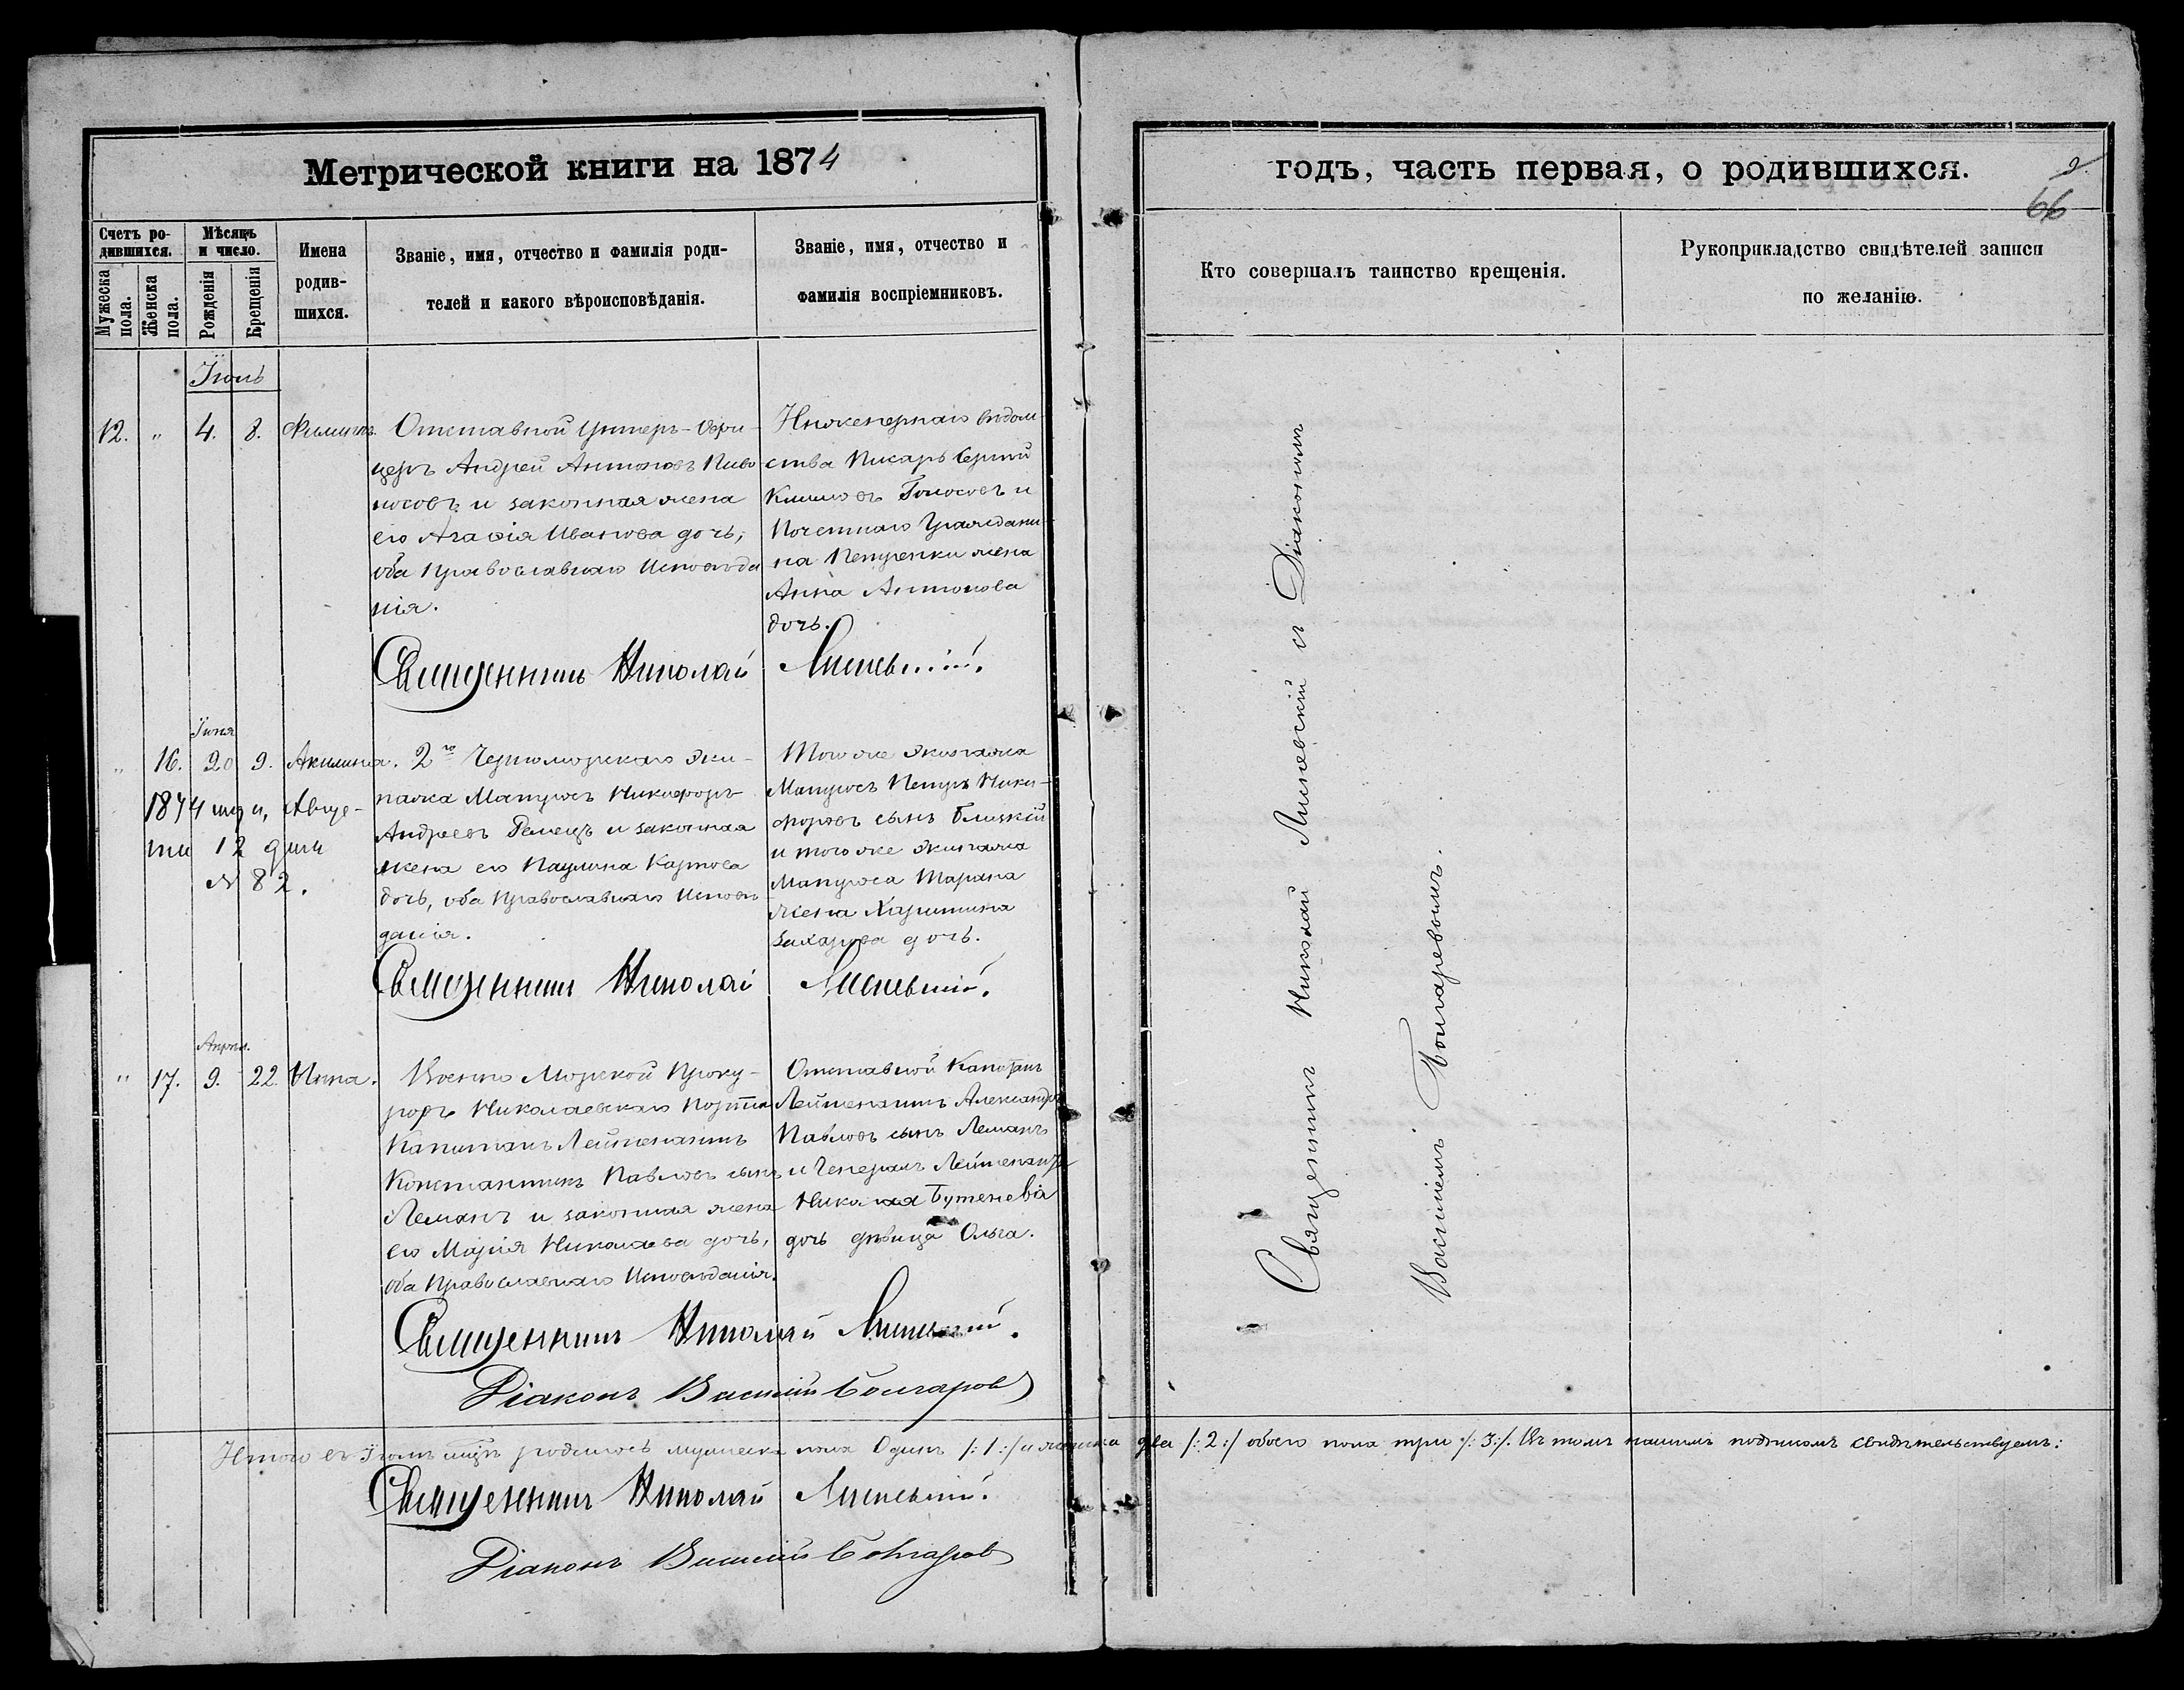 Метрической книги на 1874
годъ, часть первая, о родившихся.
66
Счетъ ро-
дившихся.
Мужеска
пола.
Женска
пола.
Мѣсяцъ
и число.
Рожденія
Крещенія
Имена
родив-
шихся.
Званіе, имя, отчество и фамилія роди-
телей и какого вѣроисповѣданія.
Званіе, имя, отчество и
фамилія воспріемниковъ.
Кто совершалъ таинство крещенія.
Рукоприкладство свидѣтелей записи
по желанію.
Іюль
12. " 4. 8. Филиппъ.
Отставной Унтеръ-Офи-
церъ Андрей Антоновъ Пиво
носовъ и законная жена
его Агафія Иванова дочь,
оба Православнаго Исповѣда
нія.
Инженернаго вѣдом-
ства Писарь Сергѣй
Климовъ Голосовъ и
Почетнаго Граждани-
на Петренки жена
Анна Антонова
дочь.
Священникъ Николай Линевскій.
Іюня
" 16. 20 9. Акилина.
1874 года, Авгу-
ста 12 дня
№ 82.
2го Черноморскаго Эки-
пажа Матросъ Никифоръ
Андреевъ Ремецъ и законная
жена его Паулина Карпова
дочь, оба Православнаго Исповѣ-
данія.
Того же Экипажа
Матросъ Петръ Ники-
форовъ сынъ Близкій
и того же Экипажа
Матроса Тарана
жена Харитина
Захарова дочь.
Священникъ Николай Линевскій.
Апрѣл.
" 17. 9. 22. Инна.
Военно Морской Проку-
роръ Николаевскаго Порта
Капитанъ Лейтенантъ
Константинъ Павловъ сынъ
Леманъ и законная жена
его Марія Николаева дочь,
оба Православнаго Исповѣданія.
Отставной Капитанъ
Лейтенантъ Александръ
Павловъ сынъ Леманъ
и Генералъ Лейтенанта
Николая Бутенева
дочь дѣвица Ольга.
Священникъ Николай Линевскій.
Діаконъ Василій Болгаровъ
Священникъ Николай Линевскій съ Діакономъ
Василіемъ Болгаревымъ.
Итого въ Іюлѣ мцѣ родилось мужеска пола Одинъ /:1:/ и женска два /:2:/ обоего пола три /:3:/. Въ томъ нашимъ подписомъ свидѣтельствуемъ:
Священникъ Николай Линевскій.
Діаконъ Василій Болгаровъ